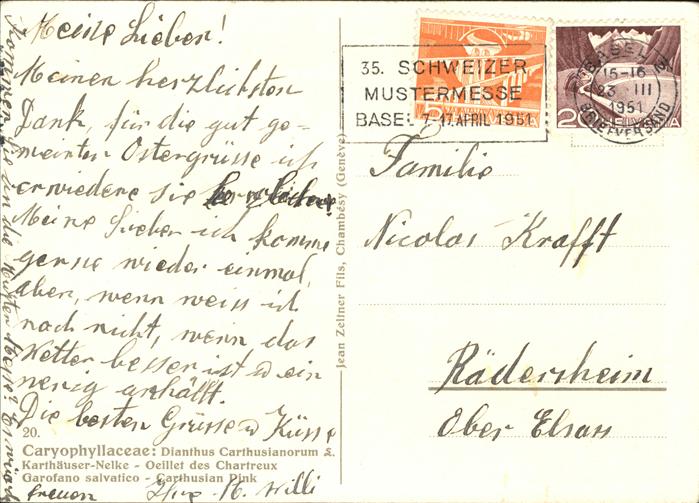 Meine Lieben!
Meinen herzlichsten
Dank, für die gut ge-
meinten Ostergrüsse ich
erwiedere sie
Meine Lieben ich komme
gerne wieder einmal,
aber, wenn weiss ich
noch nicht, wenn das
Wetter besser ist u ein
wenig anhällt.
Die besten Grüsse u Küsse
Willi
freuen
35. SCHWEIZER
MUSTERMESSE
BASEL 7-17. APRIL 1951
5
HELVETIA
20
HELVETIA
BASEL 2
15-16
23. III
1951
BRIEFVERSAND
Familie
Nicolas Krafft
Rädersheim
Ober Elsass
Jean Zellner Fils, Chambésy (Genève)
20.
Caryophyllaceae: Dianthus Carthusianorum L.
Karthäuser-Nelke - Oeillet des Chartreux
Garofano salvatico - Carthusian Pink